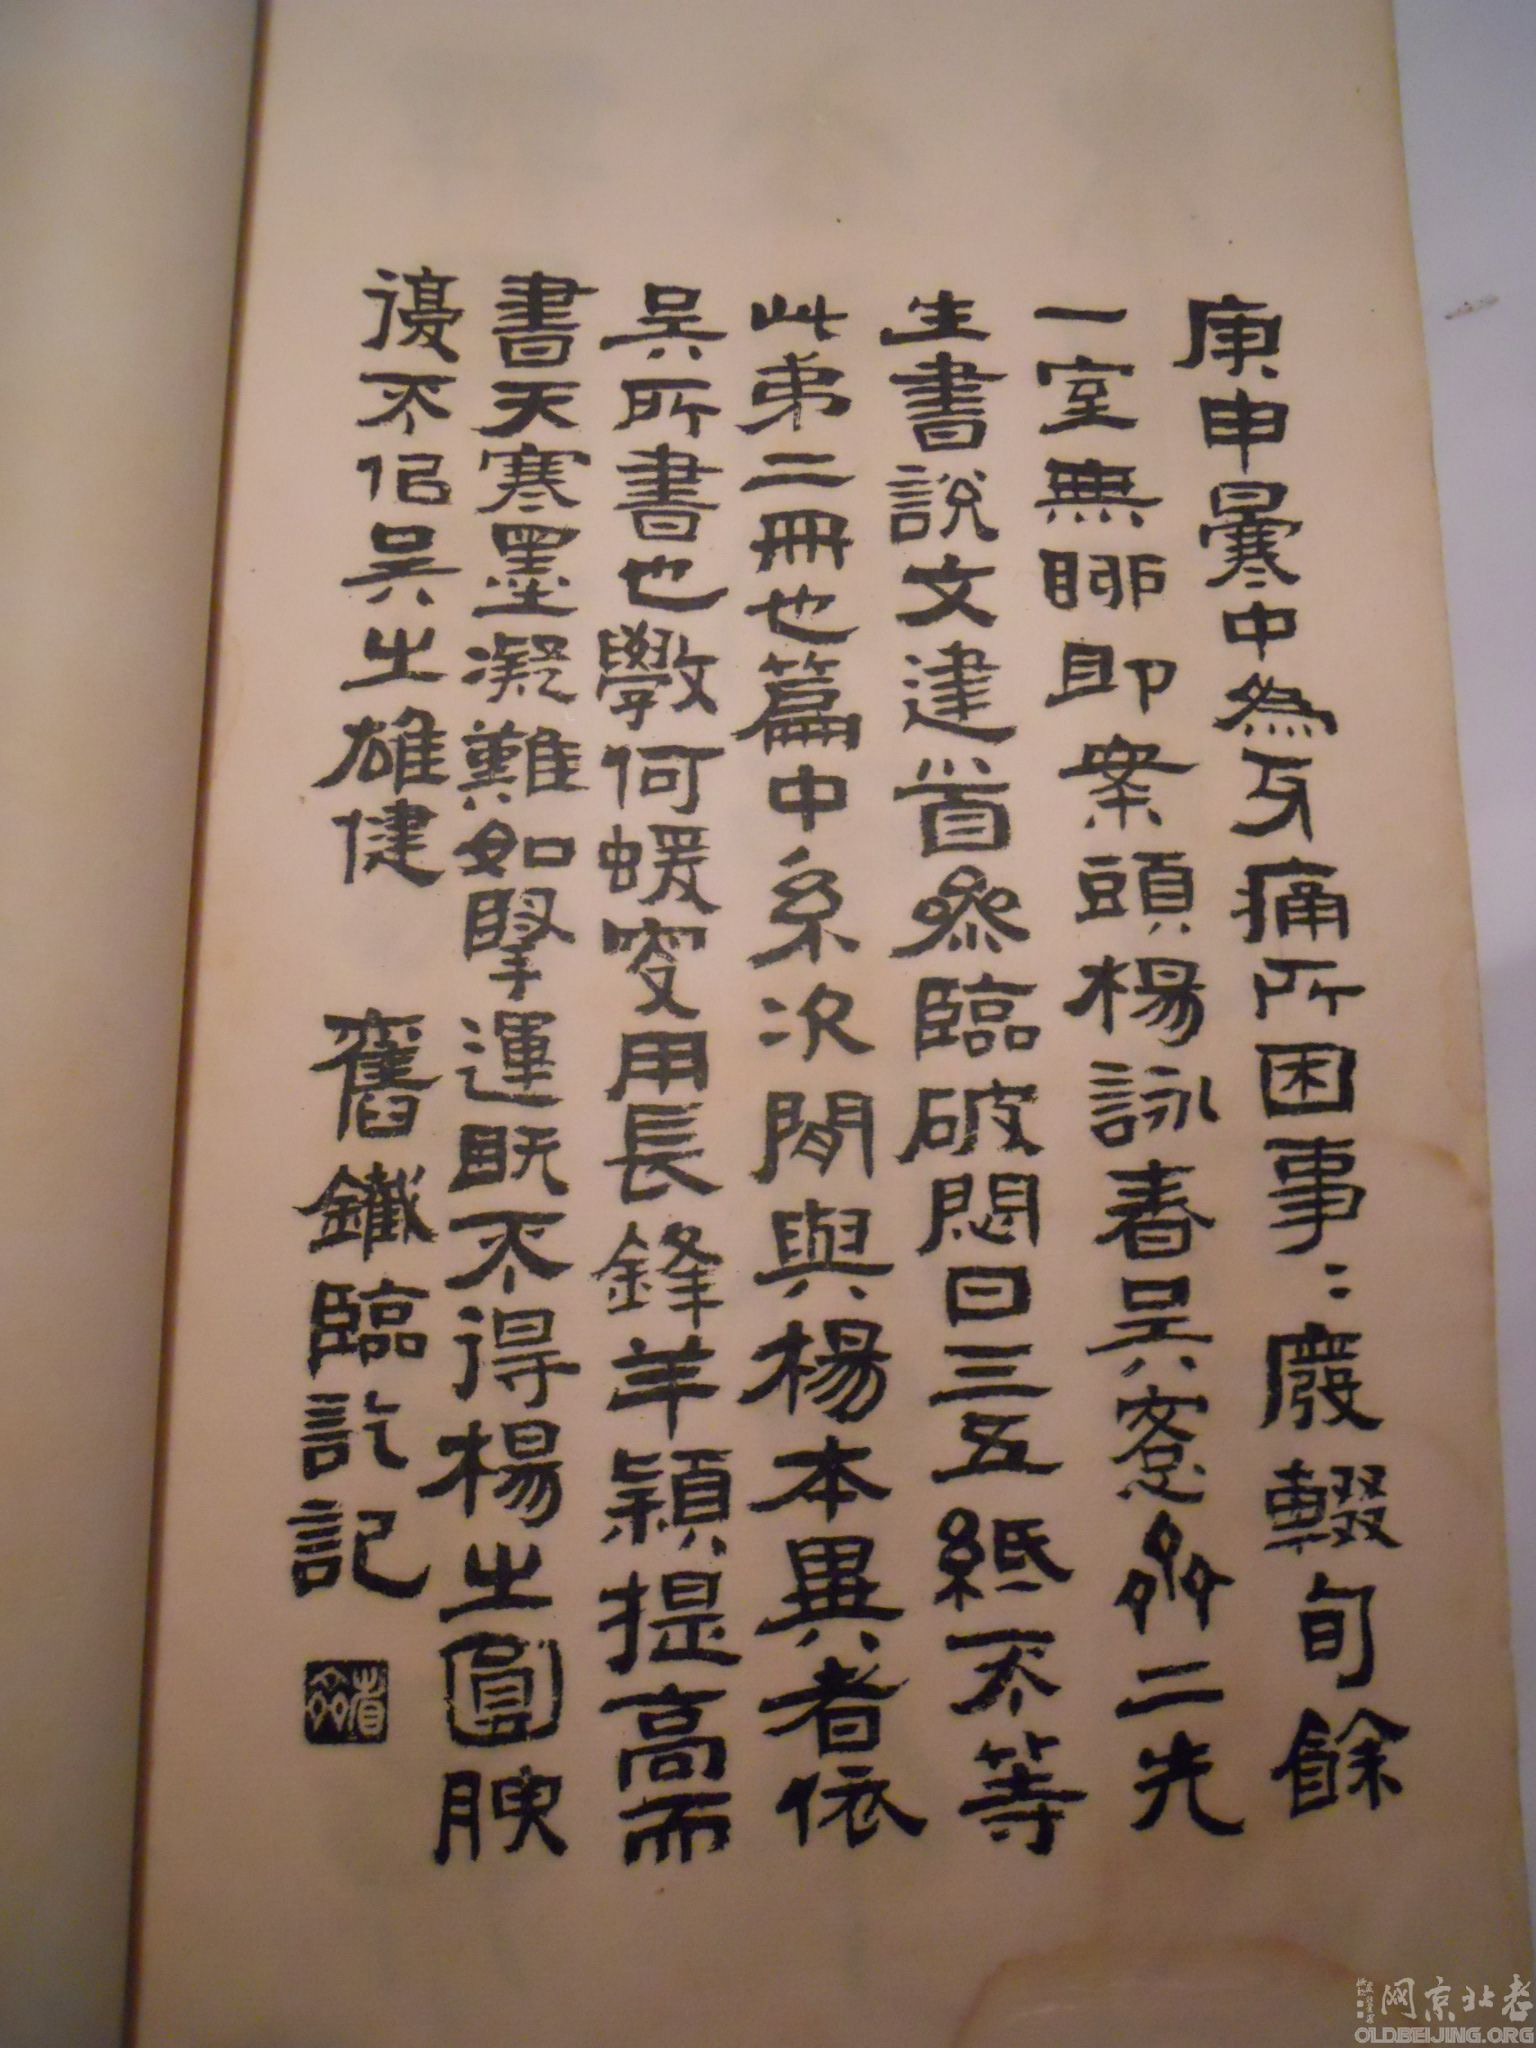 庚申暑寒中為牙痛所困事〻廢輟旬餘
一室無聊即案頭楊詠春吳愙齋二先
生書說文建首參臨破悶日三五紙不等
此弟二冊也篇中系次間與楊本異者依
吳所書也學何蝯叟用長鋒羊穎提高而
書天寒墨凝難如掔運既不得楊之圓腴
復不侣吳之雄健 舊鐵臨訖記
老北京网
OLDBEIJING.ORG